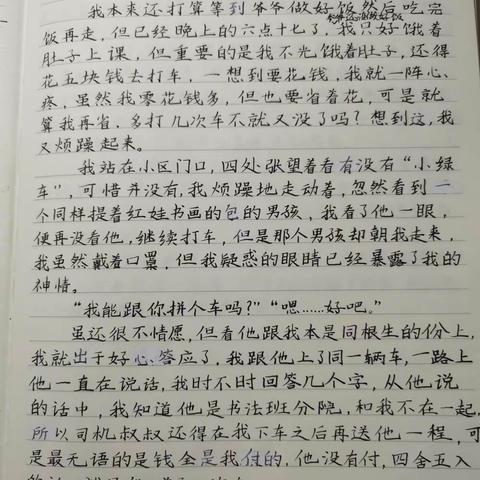 我本来还打算等到爷爷做好饭然后吃完
饭再走,但已经晚上的六点十七了,我只好饿着
肚子上课,但重要的是我不光饿着肚子,还得
花五块钱去打车,一想到要花钱,我就一阵心
疼,虽然我零花钱多,但也要省着花,可是就
算我再省,多打几次车不就又没了吗?想到这,我
又烦躁起来。
我站在小区门口,四处张望着看有没有“小绿
车”,可惜并没有,我烦躁地走动着,忽然看到一
个同样提着红娃书画的包的男孩,我看了他一眼,
便再没看他,继续打车,但是那个男孩却朝我走来,
我虽然戴着口罩,但我疑惑的眼睛已经暴露了我的
神情。
“我能跟你拼个车吗?”“嗯……好吧。”
虽还很不情愿,但看他跟我本是同根生的份上,
我就出于好心答应了,我跟他上了同一辆车,一路上
他一直在说话,我时不时回答几个字,从他说
的话中,我知道他是书法班分院,和我不在一起,
所以司机叔叔还得在我下车之后再送他一程,可
是最无语的是钱全是我付的,他没有付,四舍五入